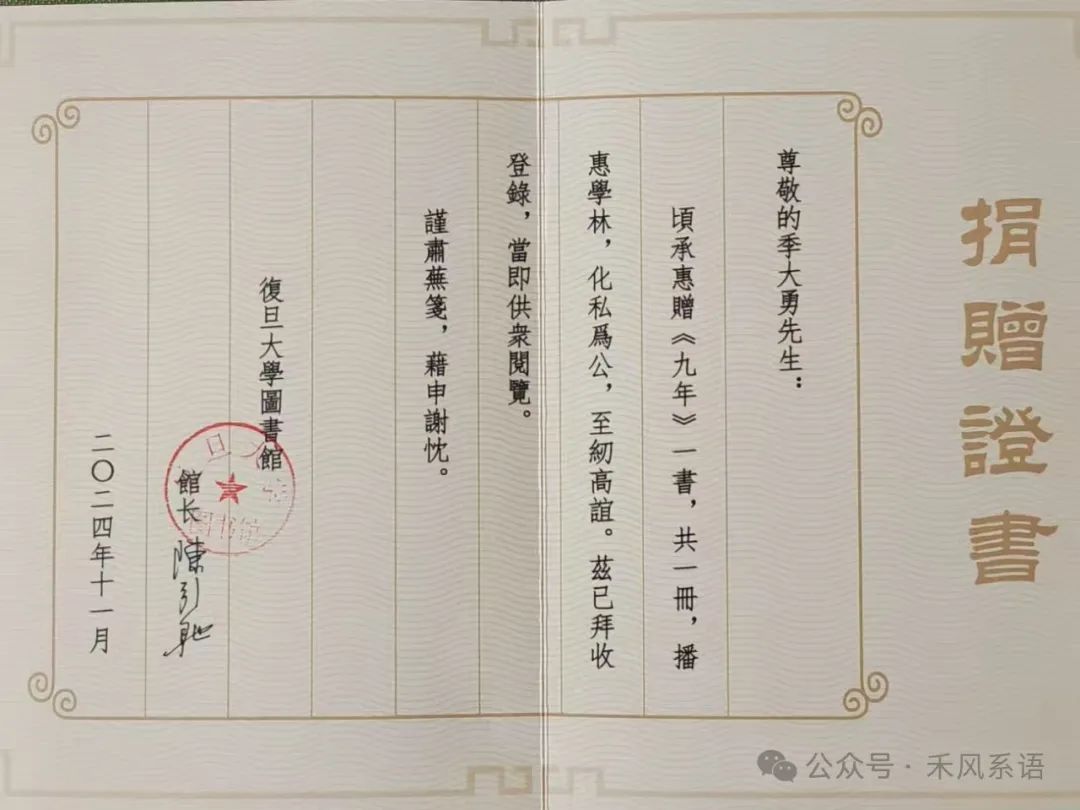 捐贈證書
尊敬的季大勇先生：
頃承惠贈《九年》一書，共一冊，播
惠學林，化私爲公，至紉高誼。茲已拜收
登錄，當即供衆閱覽。
謹肅蕪箋，藉申謝忱。
復旦大學圖書館
館长 陳引馳
二〇二四年十一月
旦大
图书馆
公众号·禾风系语